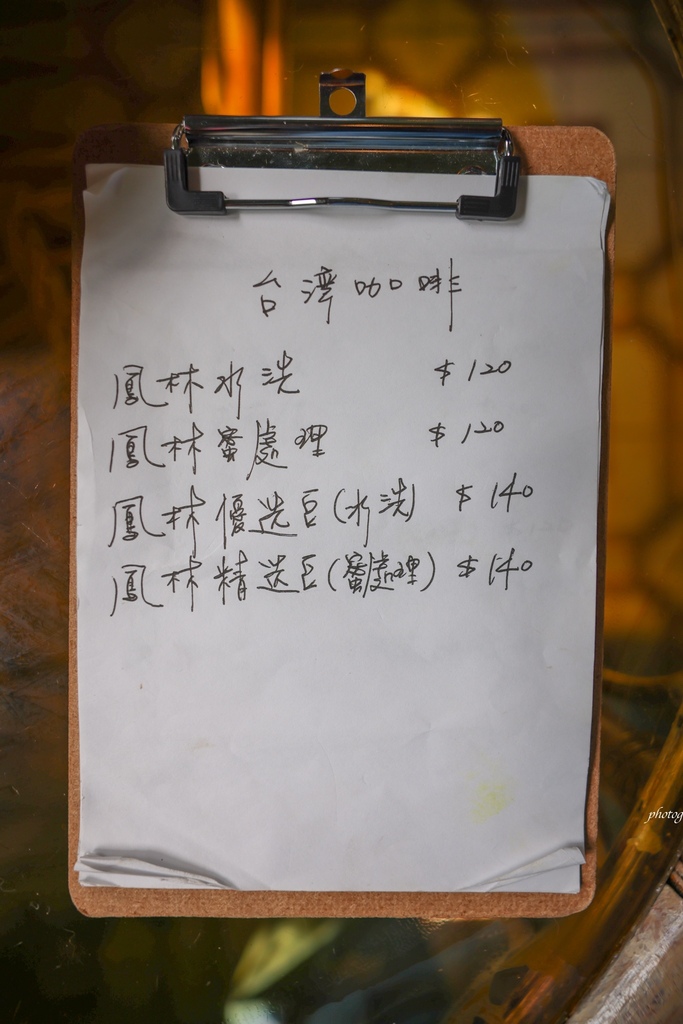 台灣咖啡
鳳林水洗 $120
鳳林蜜處理 $120
鳳林優选豆(水洗) $140
鳳林精选豆(蜜處理) $140
photog